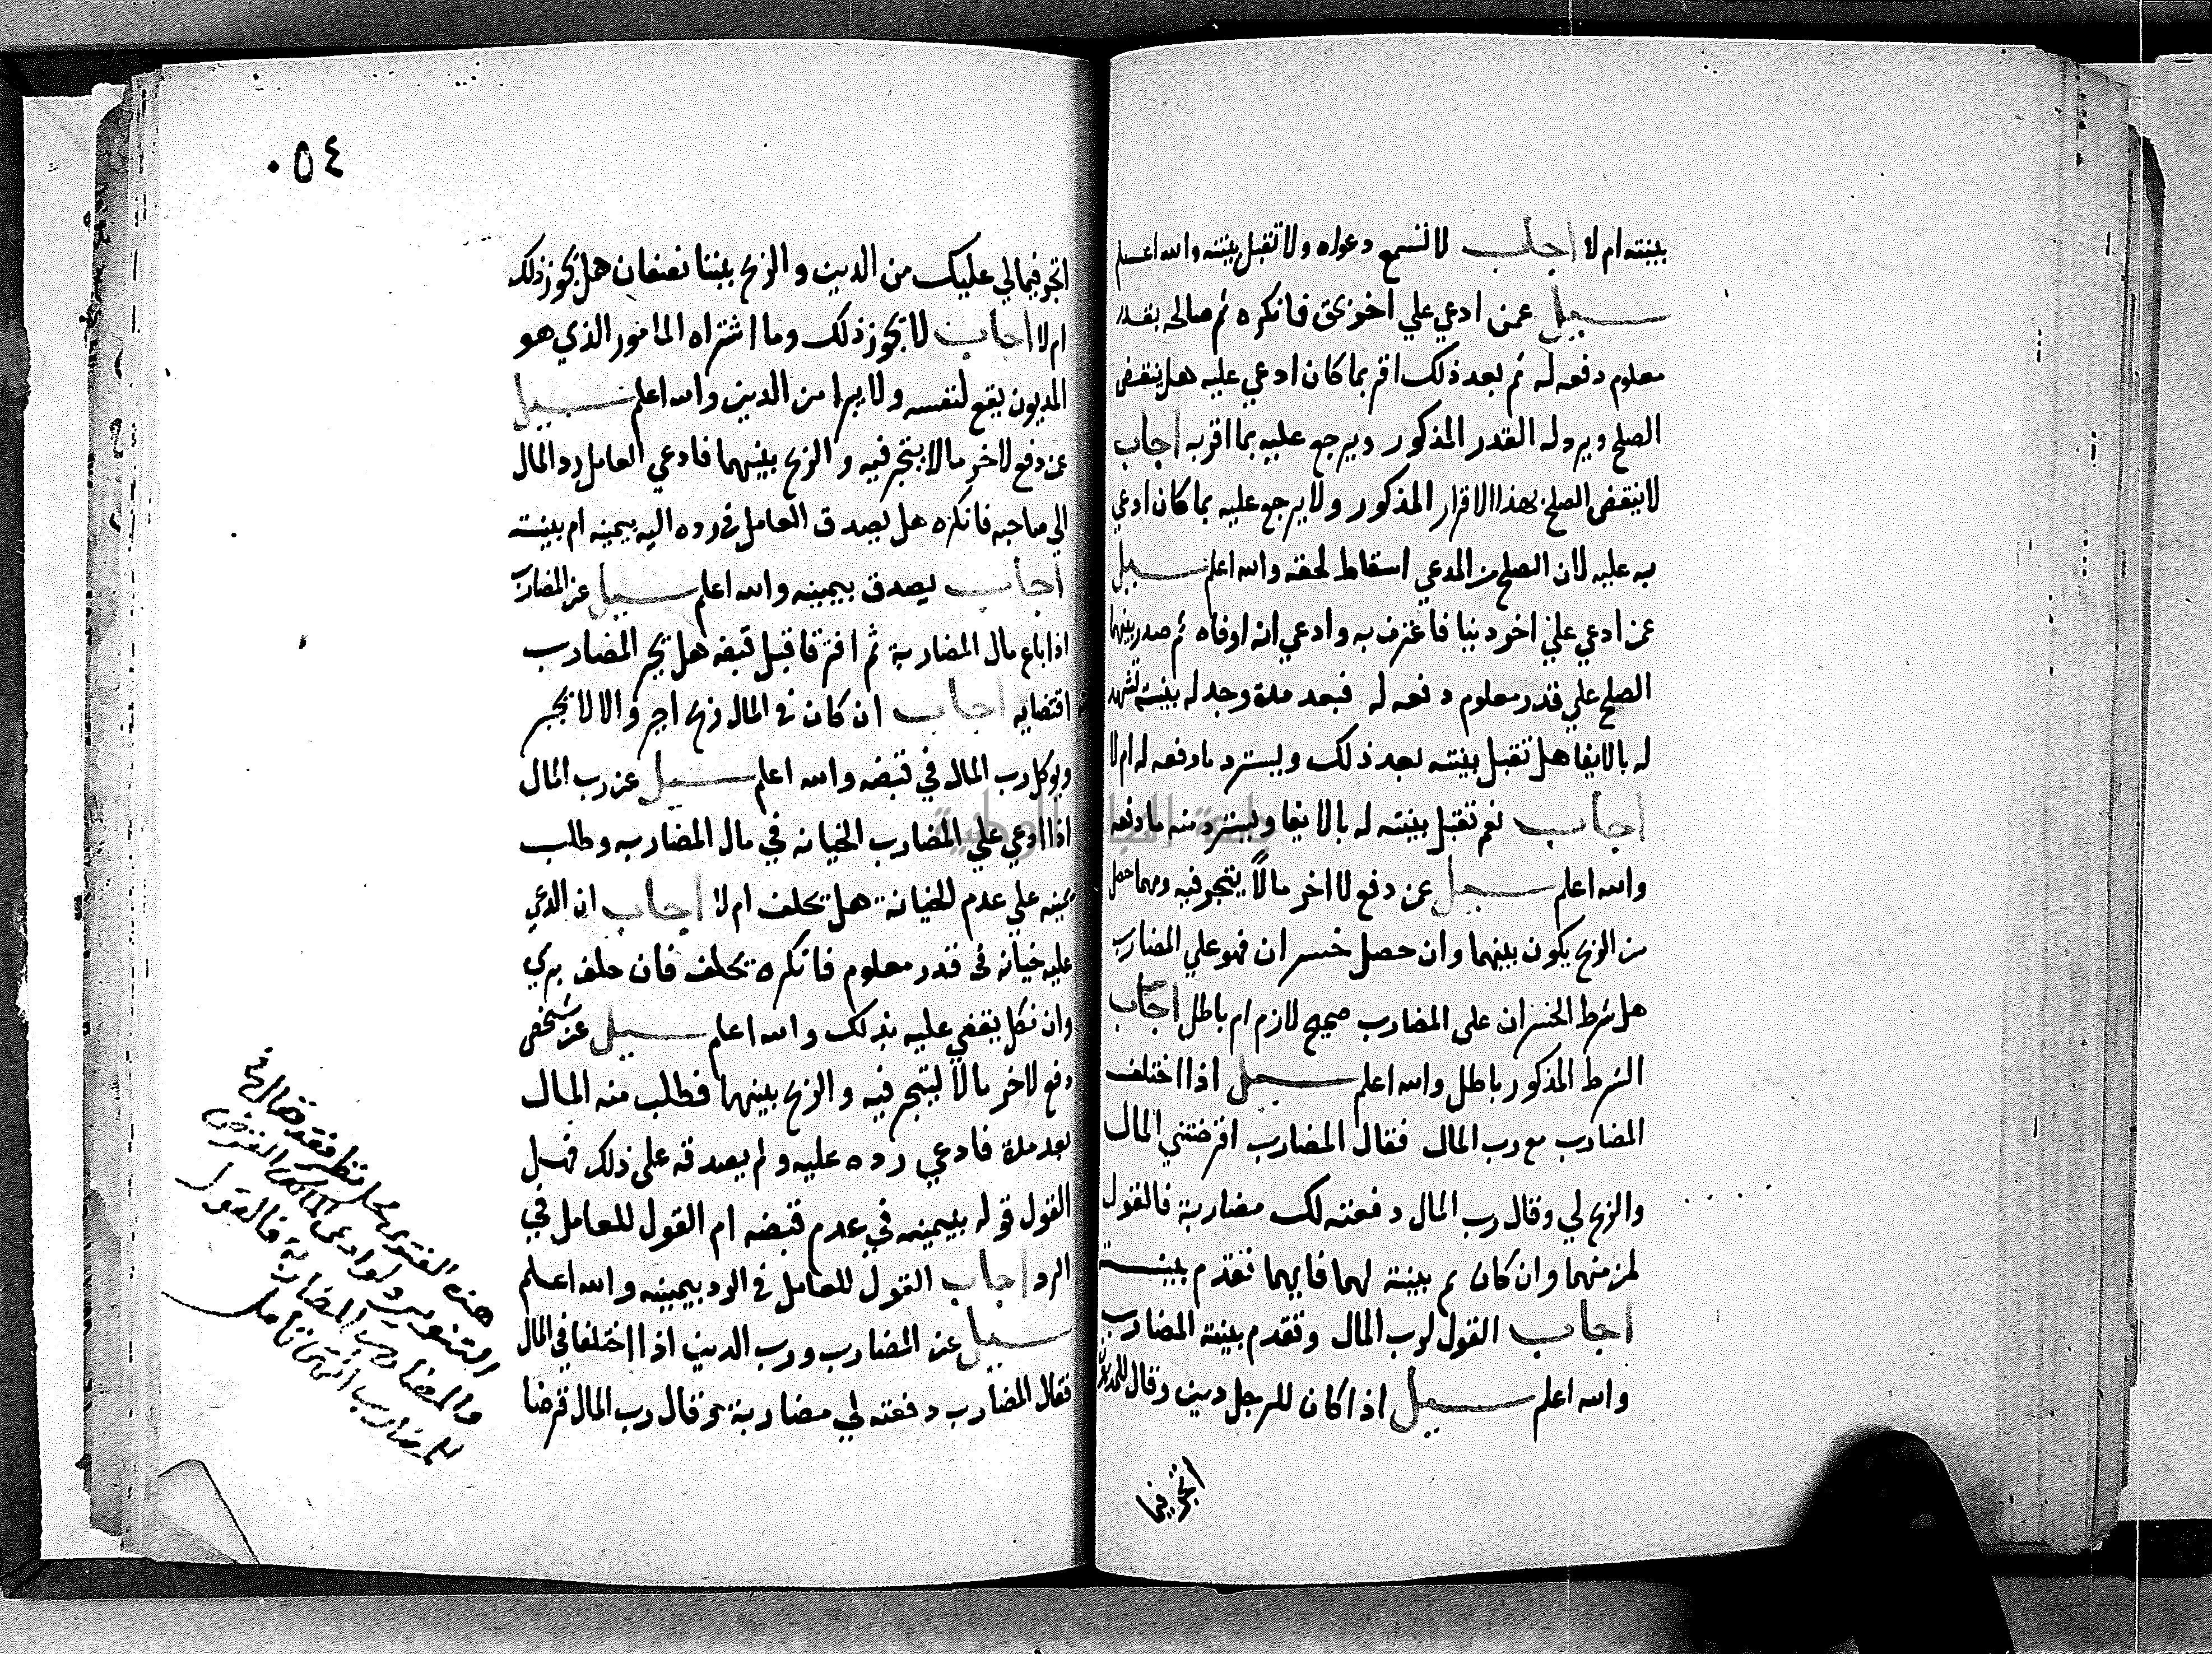 ببينته ام لا اجاب لا تسمع دعواه ولا تقبل بينته والله اعلم
سيل عمن ادعي علي اخر بحق فانكره ثم صالحه بقدر
معلوم دفعه له ثم بعد ذلك اقر بما كان ادعي عليه هل ينقض
الصلح ويرد له القدر المذكور ويرجع عليه بما اقر به اجاب
لا ينقض الصلح بهذا الاقرار المذكور ولا يرجع عليه بما كان ادعي
به عليه لان الصلح من المدعي اسقاط لحقه والله اعلم سيل
عمن ادعي علي اخر دينا فاعترف به وادعي انه اوفاه ثم صدر بينهما
الصلح علي قدر معلوم دفعه له فبعد مدة وجد له بينة تشهد
له بالايفا هل تقبل بينته بعد ذلك ويسترد ما دفعه له ام لا
اجاب نعم تقبل بينته له بالايفا ويسترد منه ما دفعه
والله اعلم سيل عن دفع لاخر مالاً يتجر فيه ومهما حصل
من الربح يكون بينهما وان حصل خسران فهو علي المضارب
هل شرط الخسران على المضارب صحيح لازم ام باطل اجاب
الشرط المذكور باطل والله اعلم سيل اذا اختلف
المضارب مع رب المال فقال المضارب اقرضتني المال
والربح لي وقال رب المال دفعته لك مضاربة فالقول
لمن منهما وان كان ثم بينة لهما فايهما تقدم بينته
اجاب القول لرب المال وتقدم بينة المضارب
والله اعلم سيل اذا كان للرجل دين وقال للمديون
اتجر فيما
٠٥٤
اتجر فيما لي عليك من الدين والربح بيننا نصفان هل يجوز ذلك
ام لا اجاب لا يجوز ذلك وما اشتراه المامور الذي هو
المديون يقع لنفسه ولا يبرا من الدين والله اعلم سيل
عن دفع لاخر مالا يتجر فيه والربح بينهما فادعي العامل رد المال
الي صاحبه فانكره هل يصدق العامل في رده اليه بيمينه ام ببينته
اجاب يصدق بيمينه والله اعلم سيل عن المضارب
اذا باع مال المضاربة ثم افترقا قبل قبضه هل يجبر المضارب
اقتضايه اجاب ان كان في المال ربح اجبر والا لا يجبر
ويوكل رب المال في قبضه والله اعلم سيل عن رب المال
اذا ادعي علي المضارب الخيانة في مال المضاربه وطلب
يمينه علي عدم الخيانة هل يحلف ام لا اجاب ان ادعي
عليه خيانة في قدر معلوم فانكره يحلف فان حلف بري
وان نكل يقضي عليه بذلك والله اعلم سيل عن شخص
دفع لاخر مالاً ليتجر فيه والربح بينهما فطلب منه المال
بعد مدة فادعي رده عليه ولم يصدقه على ذلك فهل
القول قوله بيمينه في عدم قبضه ام القول للعامل في
الرد اجاب القول للعامل في الرد بيمينه والله اعلم
سيل عن المضارب ورب الدين اذا اختلفا في المال
فقال المضارب دفعته لي مضاربة وقال رب المال قرضا
هذه الفتوى محل نظر فقد قال في
التنوير ولو ادعى المالك القرض
والمضارب المضاربة فالقول
للمضارب